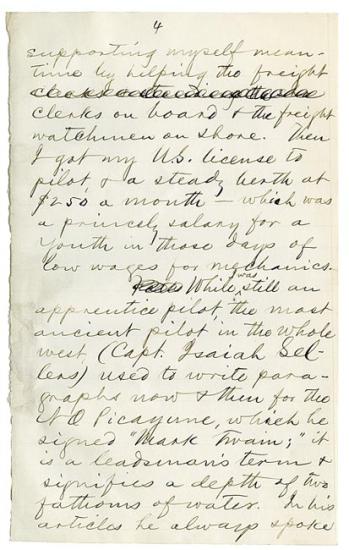 4
supporting myself mean-
time by helping the freight
clerks on board & the freight
watchmen on shore. Then
I got my U.S. license to
pilot, & a steady berth at
$250 a month — which was
a princely salary for a
youth in those days of
low wages for mechanics.
While was still an
apprentice pilot, the most
ancient pilot in the whole
west, (Capt. Isaiah Sel-
lers) used to write para-
graphs now & then for the
N O Picayune, which he
signed "Mark Twain;" it
is a leadsman's term &
signifies a depth of two
fathoms of water. In his
articles he always spoke